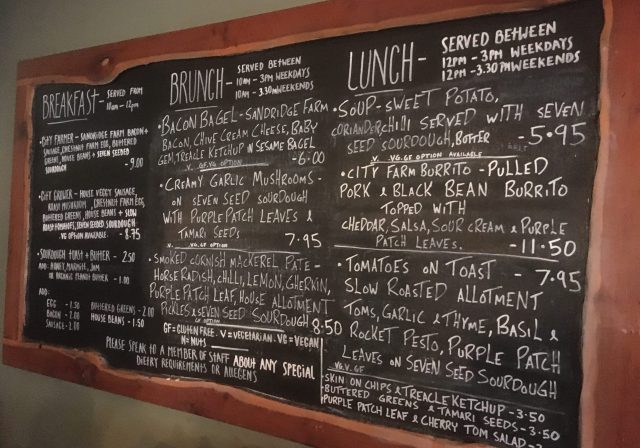 BREAKFAST SERVED FROM
10am - 12pm
• CITY FARMER - SANDRIDGE FARM BACON +
SAUSAGE, CHESTNUT FARM EGG, BUTTERED
GREENS, HOUSE BEANS + SEVEN SEEDED
SOURDOUGH - 9.00
• CITY GROWER - HOUSE VEGGY SAUSAGE,
ROAST MUSHROOM, CHESTNUT FARM EGG,
BUTTERED GREENS, HOUSE BEANS + SLOW
ROAST TOMATOES, SEVEN SEEDED SOURDOUGH
VG OPTION AVAILABLE. - 8.75
• SOURDOUGH TOAST + BUTTER - 2.50
ADD - HONEY, MARMITE, JAM
OR ORGANIC PEANUT BUTTER - 1.00
ADD:
EGG - 1.50 BUTTERED GREENS - 2.00
BACON - 2.00 HOUSE BEANS - 1.50
SAUSAGE - 2.00
BRUNCH - SERVED BETWEEN
10AM - 3PM WEEKDAYS
10AM - 3.30PM WEEKENDS
• BACON BAGEL - SANDRIDGE FARM
BACON, CHIVE CREAM CHEESE, BABY
GEM, TREACLE KETCHUP IN SESAME BAGEL
V. GF. OPTION - 6.00
• CREAMY GARLIC MUSHROOMS -
ON SEVEN SEED SOURDOUGH
WITH PURPLE PATCH LEAVES &
TAMARI SEEDS 7.95
V. VG. GF OPTION
• SMOKED CORNISH MACKEREL PATE -
HORSE RADISH, CHILLI, LEMON, GHERKIN,
PURPLE PATCH LEAF, HOUSE ALLOTMENT
PICKLES & SEVEN SEED SOURDOUGH 8.50
GF OPTION
GF = GLUTEN FREE - V = VEGETARIAN - VG = VEGAN
N = NUTS
PLEASE SPEAK TO A MEMBER OF STAFF ABOUT ANY SPECIAL
DIETRY REQUIREMENTS OR ALLEGENS
LUNCH - SERVED BETWEEN
12PM - 3PM WEEKDAYS
12PM - 3.30PM WEEKENDS
• SOUP - SWEET POTATO,
CORIANDER, CHILLI SERVED WITH SEVEN
SEED SOURDOUGH, BUTTER - 5.95
V. VG. GF OPTION AVAILABLE
• CITY FARM BURRITO - PULLED
PORK & BLACK BEAN BURRITO
TOPPED WITH
CHEDDAR, SALSA, SOUR CREAM & PURPLE
PATCH LEAVES. - 11.50
• TOMATOES ON TOAST - 7.95
SLOW ROASTED ALLOTMENT
TOMS, GARLIC & THYME, BASIL &
ROCKET PESTO, PURPLE PATCH
LEAVES ON SEVEN SEED SOURDOUGH
VG. V. GF
SKIN ON CHIPS & TREACLE KETCHUP - 3.50
BUTTERED GREENS & TAMARI SEEDS - 3.50
PURPLE PATCH LEAF & CHERRY TOM SALAD